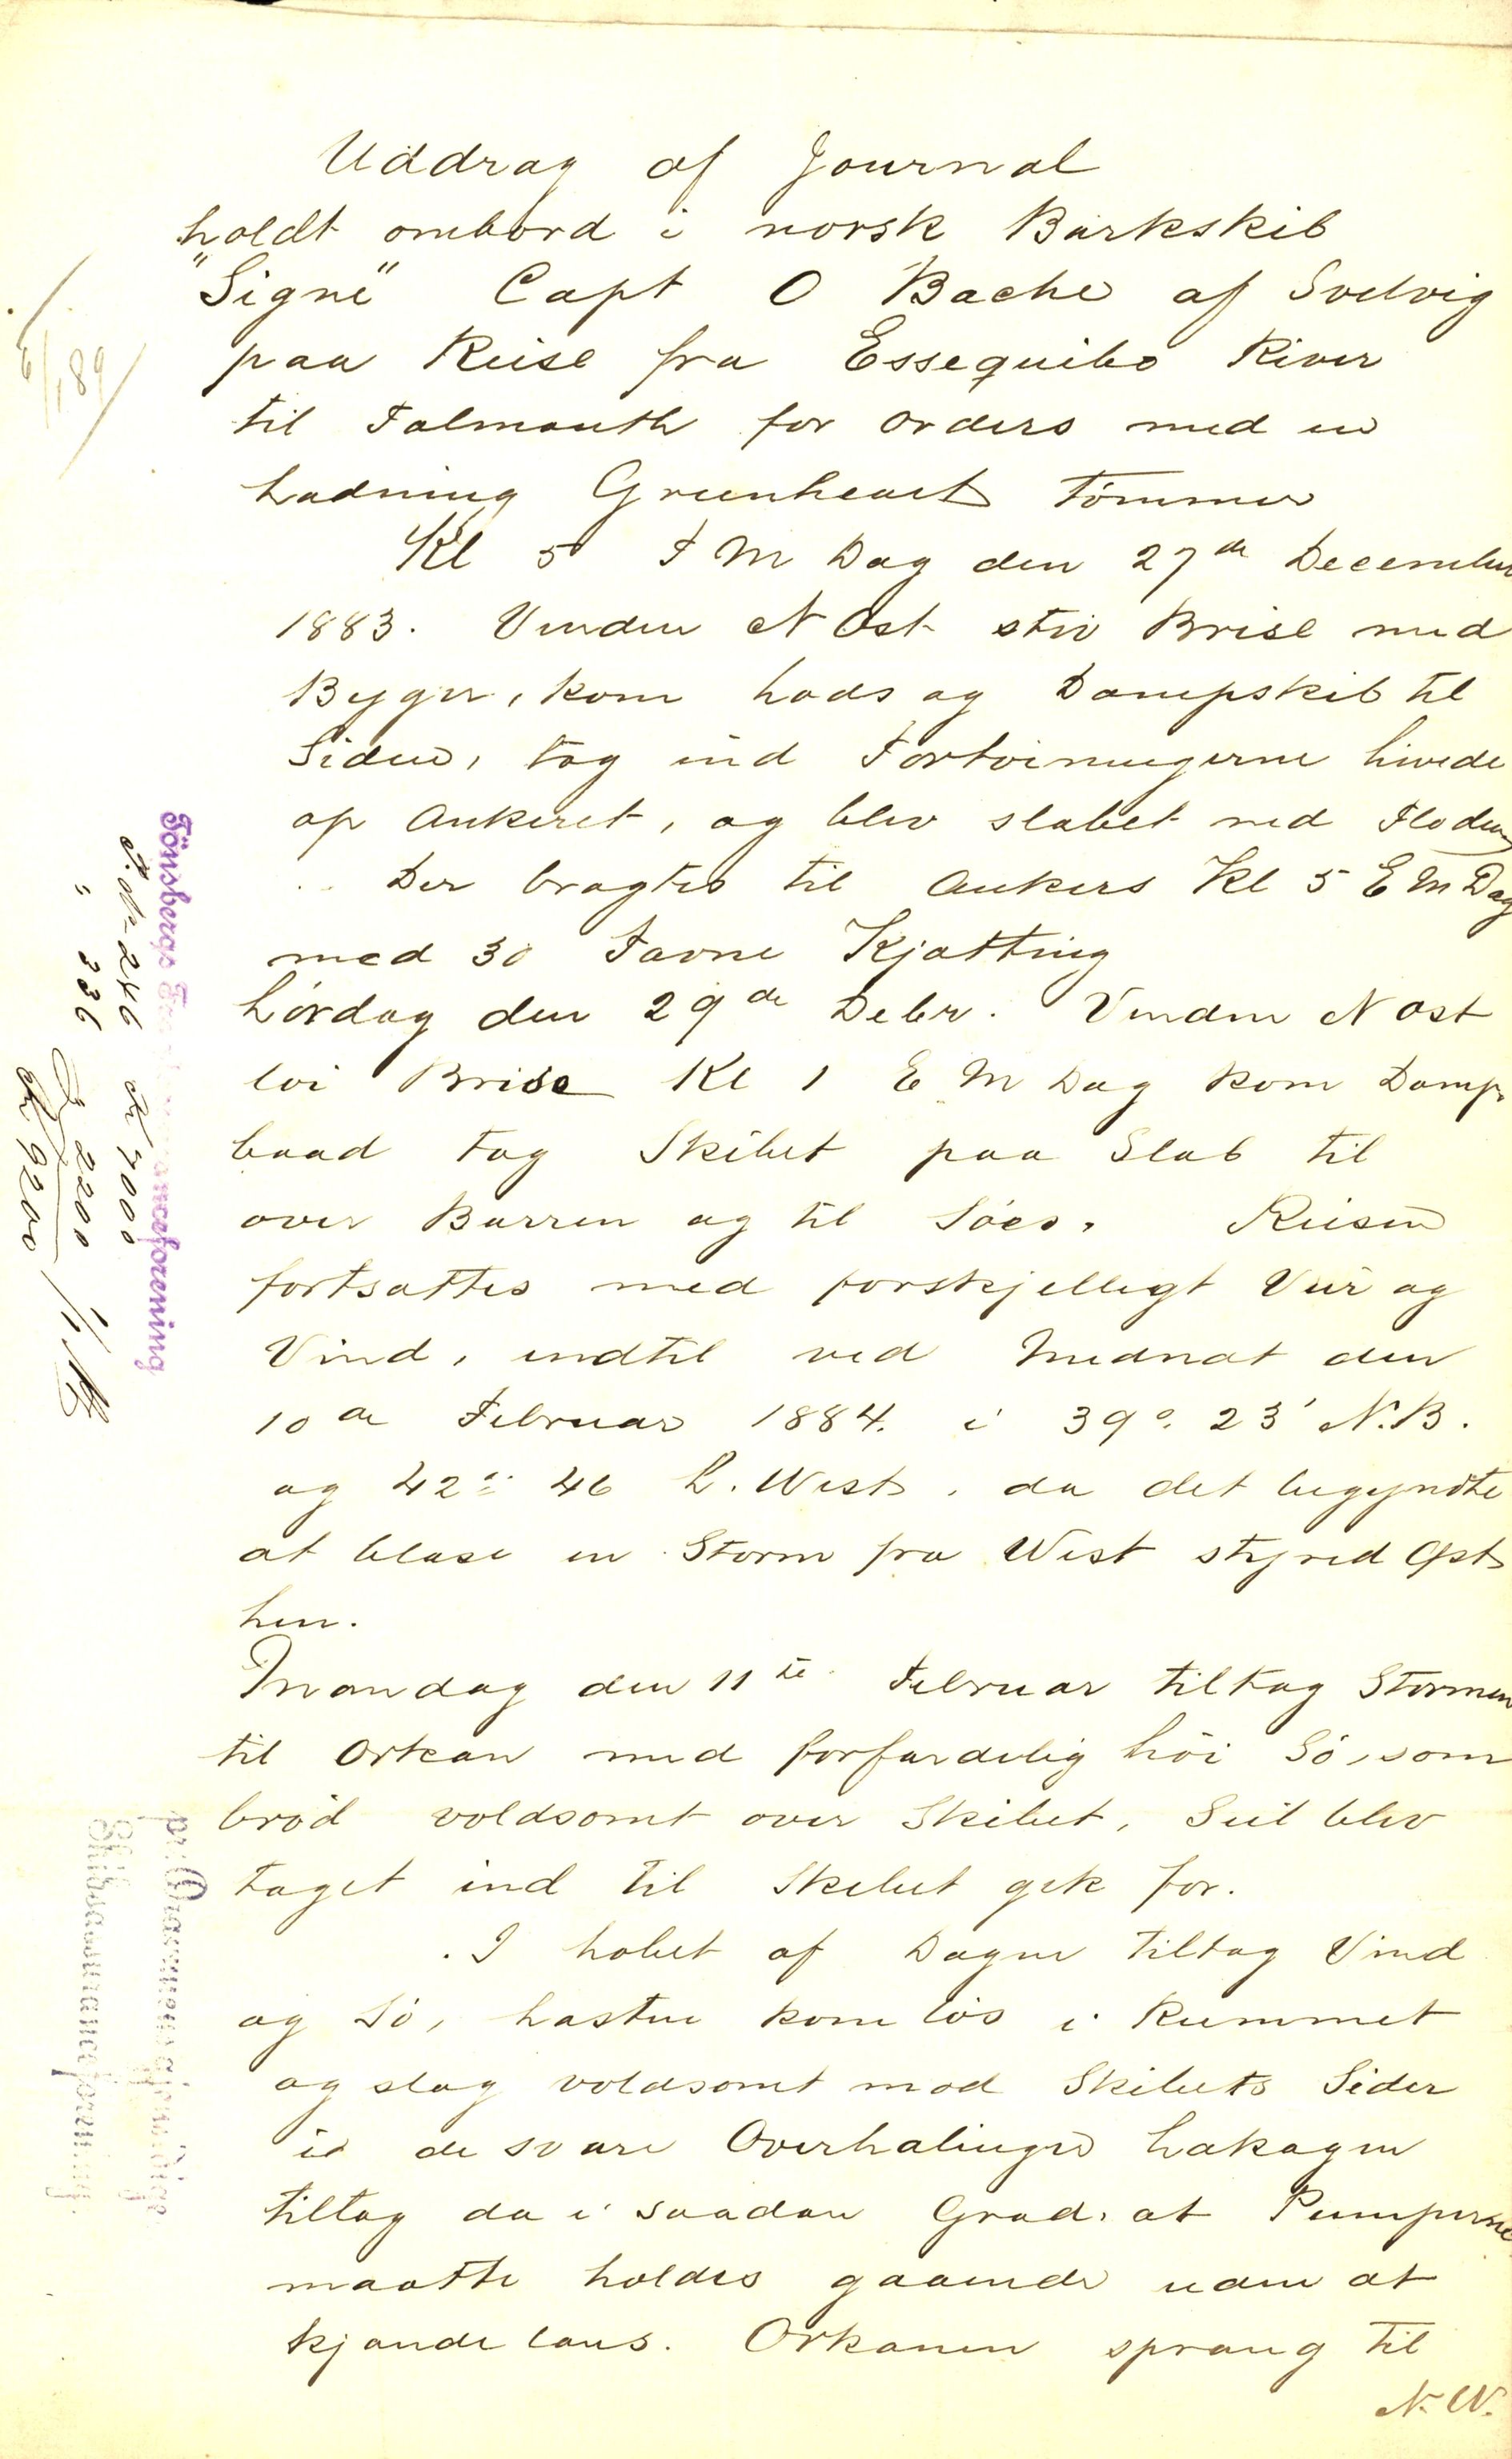 Uddrag af Journal
holdt ombord i norsk Barkskib
"Signe" Capt O Bache af Svelvig
paa Reise fra Essequibo River
til Falmouth for Orders med en
Ladning Greenheart Tömmer
Kl 5 F M Dag den 27de December
1883. Vinden N Ost stiv Brise med
Byger, kom Lods og Dampskib til
Siden, tog ind Fortöiningerne hivede
op Ankeret, og blev slæbet ned Floden
Der bragtes til Ankers Kl 5 E M Dag
med 30 Favne Kjætting
Lördag den 29de Debr. Vinden N Ost
löi Brise Kl 1 E M Dag kom Damp
baad tog Skibet paa Slæb til
over Barren og til Söes. Reisen
fortsattes med forskjelligt Veir og
Vind, indtil ved Midnat den
10de Februar 1884. i 39° 23' N.B.
og 42° 46 L. West, da det begyndte
at blæse en Storm fra West styred Ost
hen.
Mandag den 11te Februar tiltog Stormen
til Orkan med forfærdelig höi Sö, som
bröd voldsomt over Skibet, Seil blev
taget ind til Skibet gik for.
I Löbet af Dagen tiltog Vind
og Sö, Lasten kom lös i Rummet
og slog voldsomt mod Skibets Sider
i de svære Overhalinger Lækagen
tiltog da i saadan Grad, at Pumperne
maatte holdes gaaende uden at
kjænde læns. Orkanen sprang til
N.W.
6/1 89
Tönsbergs
anceforening
F. No 246 Kr 7000
" 336 " 2200
Kr 9200
Skibsassuranceforening